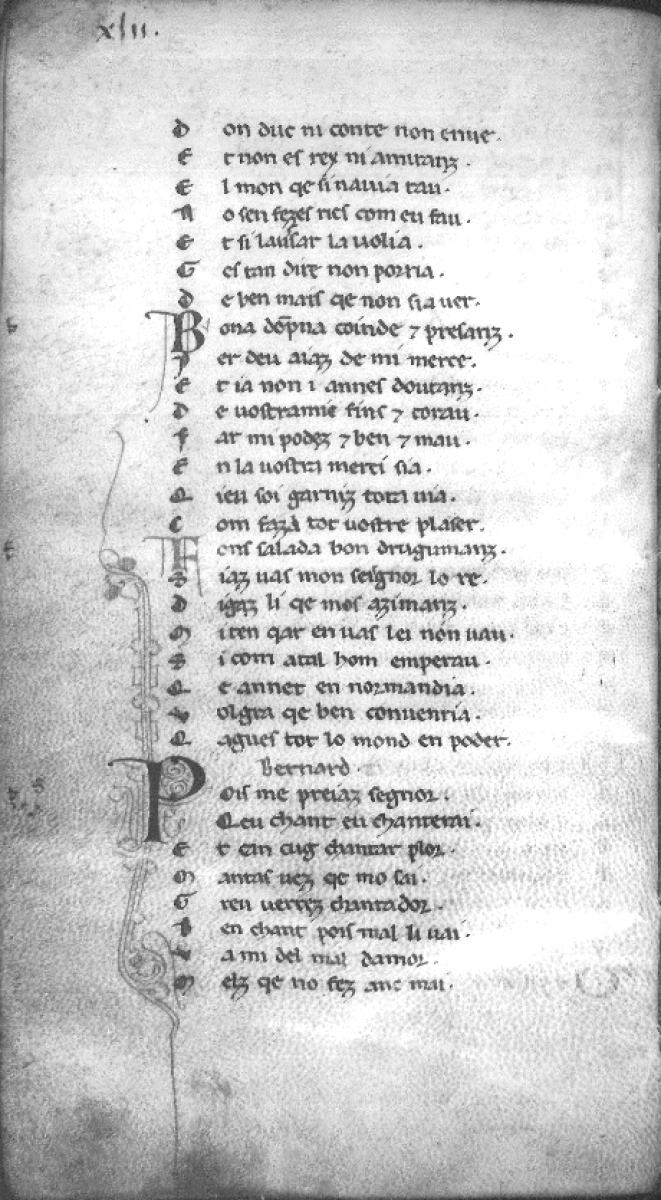 xlii.
D on duc ni conte non enue.
E t non es rey ni amiranz.
E l mon qe si nauia tau.
N o sen fezes rics com eu fau.
E t si lausar la uolia.
G es tan dire non porria.
D e ben mais qe non sia uer.
B ona dōpna coinde ⁊ presanz.
P er deu aiaz de mi merce.
E t ia non i annes doutanz.
D e uostramie fins ⁊ corau.
F ar mi podez ⁊ ben ⁊ mau.
E n la uostra merci sia.
Q ieu soi garniz tota uia.
C om faza tot uostre plaser.
F ons salada bon drugumanz.
S iaz uas mon seignor lo re.
D igaz li qe mos azimanz.
M i ten qar en uas lei non uau.
S i com atal hom emperau.
Q e annet en normandia.
V olgra qe ben conuenria.
Q agues tot lo mond en poder.
Bernard
P ois me preiaz segnor.
Q eu chant eu chanterai.
E t can cug chantar plor.
M antas uez qe mo sai.
G reu uerrez chantador.
B en chant pois mal li uai.
V a mi del mal damor.
M elz qe no fez anc mai.